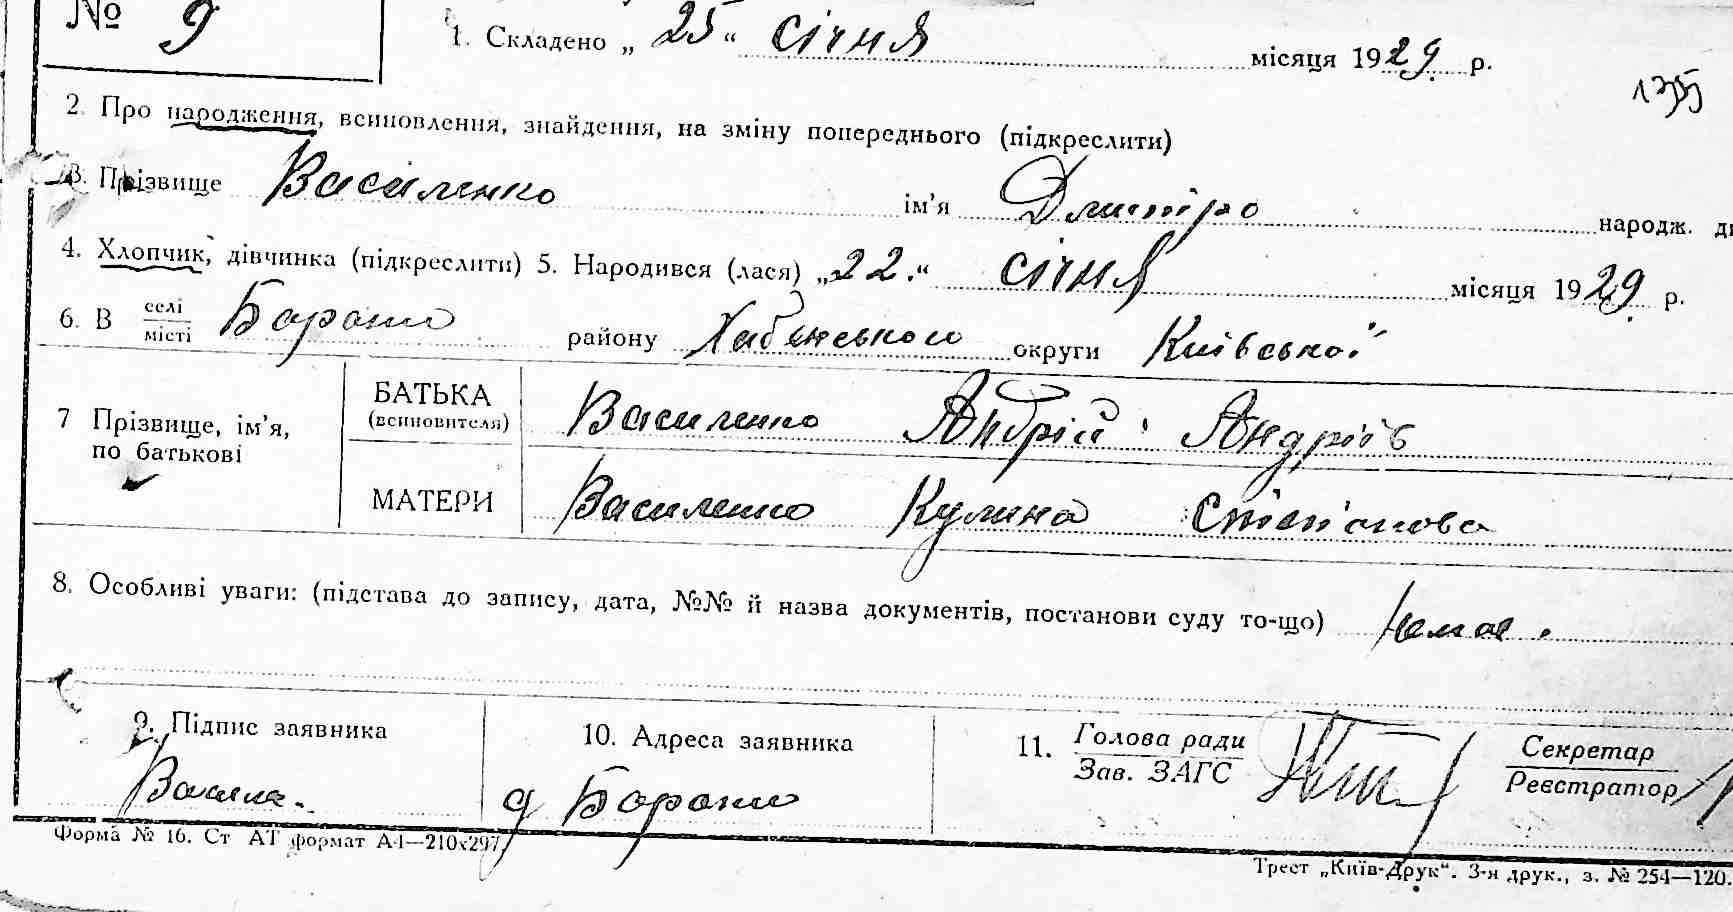 № 9
1. Складено „ 25 “ січня місяця 1929 р.
135
2. Про народження, всиновлення, знайдення, на зміну попереднього (підкреслити)
3. Прізвище Василенко ім'я Дмитро народж. ди
4. Хлопчик, дівчинка (підкреслити) 5. Народився (лася) „22.“ січня місяця 1929 р.
6. В селі/місті Борони району Хабенського округи Київської
7 Прізвище, ім'я, по батькові
БАТЬКА (всиновителя) Василенко Андрій Андріїв
МАТЕРИ Василенко Кулина Степанова
8. Особливі уваги: (підстава до запису, дата, №№ й назва документів, постанови суду то-що) немає.
9. Підпис заявника
10. Адреса заявника
11. Голова ради/Зав. ЗАГС
Секретар/Реєстратор
Василе.
д Борони
Форма № 16. Ст АТ формат А4—210х297.
Трест „Київ-Друк“. 3-я друк., з. № 254—120.